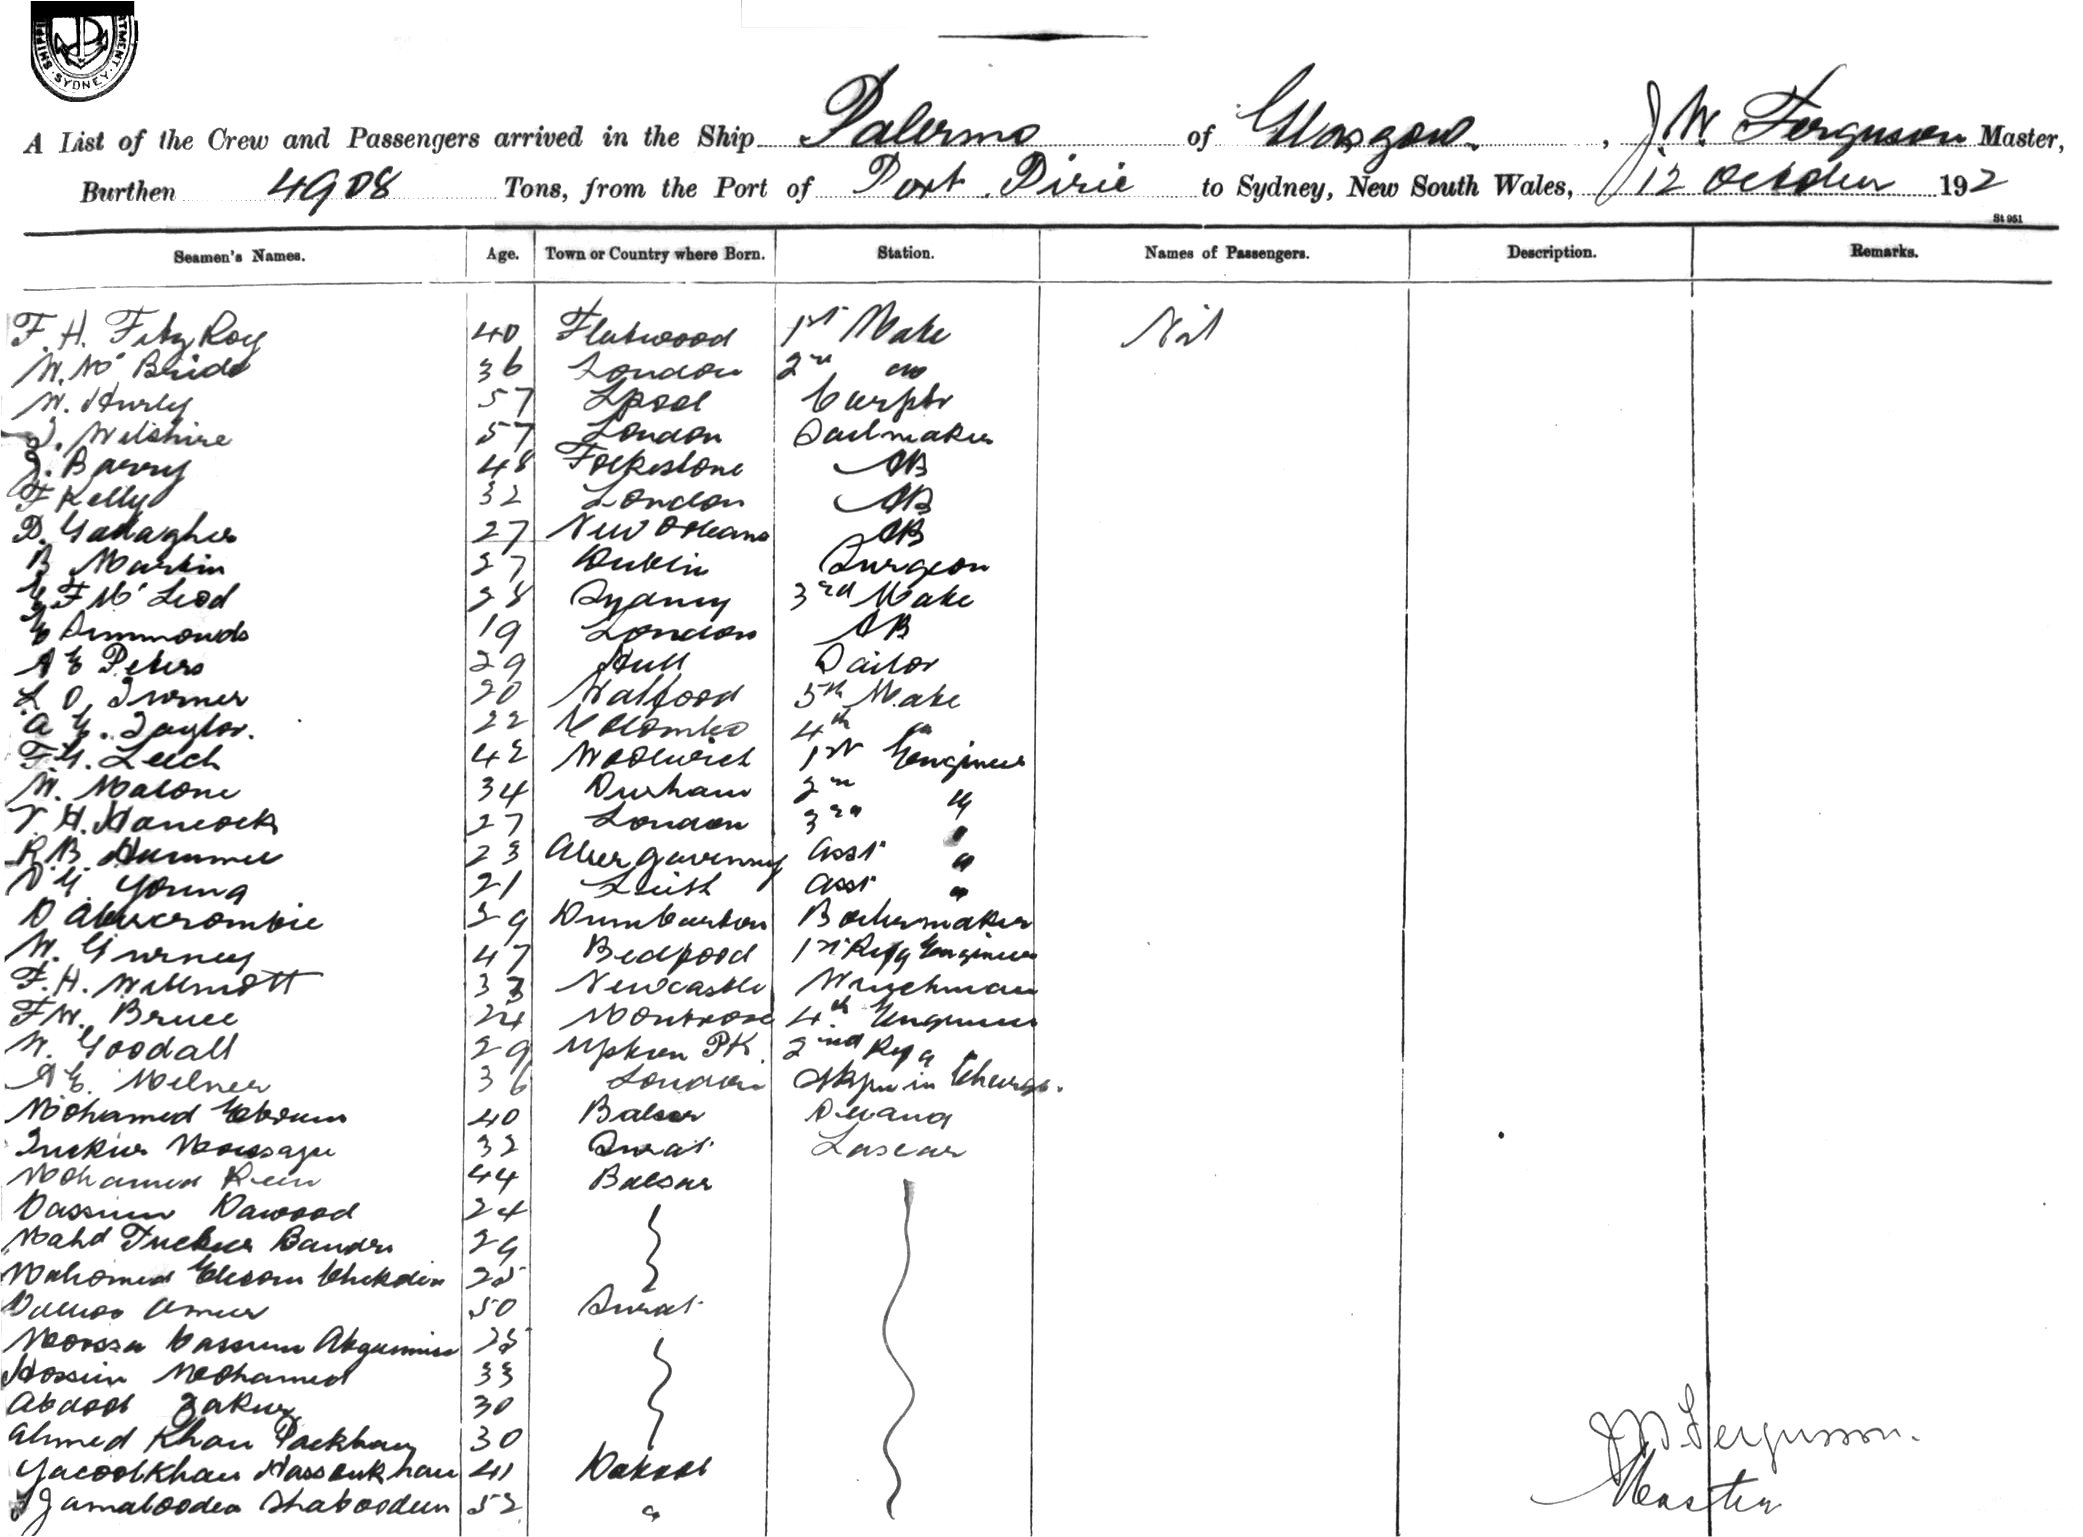 SYDNEY
A List of the Crew and Passengers arrived in the Ship Palermo of Glasgow, J. W. Ferguson Master,
Burthen 4908 Tons, from the Port of Port Pirie to Sydney, New South Wales, 12 October 192
St 951
Seamen's Names. Age. Town or Country where Born. Station. Names of Passengers. Description. Remarks.
F. H. Fitz Roy 40 Fleetwood 1st Mate Nil
W. Mc Bride 36 London 2nd do
W. Hurly 57 Lpool Carptr
Wilshire 57 London Sailmaker
J. Barry 48 Folkestone AB
F Kelly 32 London AB
D. Gallagher 27 New Orleans AB
B Martin 27 Dublin Surgeon
F Mc Leod 28 Sydney 3rd Mate
E Simmonds 19 London AB
A E Peters 29 Hull Sailor
L O. Turner 20 Watford 5th Mate
A E. Taylor. 22 Colombo 4th do
F. G. Leech 42 Woolwich 1st Engineer
W. Malone 34 Durham 2nd "
T. H. Hancock 27 London 3rd "
R. B. 23 Abergavenny Asst "
D G. Young 21 Leith Asst "
D Abercrombie 29 Dumbarton Boilermaker
W. Gurney 47 Bedford 1st Refg Engineer
F. H. Willmott 37 Newcastle Winchman
F W. Bruce 24 Montrose 4th Engineer
W. Goodall 29 Upton PK. 2nd Refg
A E. Milner 36 London Stkpr in Charge.
Mohamed Ebrum 40 Balsar
32 Surat Lascar
Mohamed 44 Balsar
Dawood 24
Mahd Bander 29
Mahomed
50 Surat
Moossa Cassum
Hossein Mohamed 33
Abdool 30
Ahmed Khan 30
Yacoolkhan Hassankhan 41
Jamaloodeen Shaboodeen 52 "
J W. Ferguson.
Master